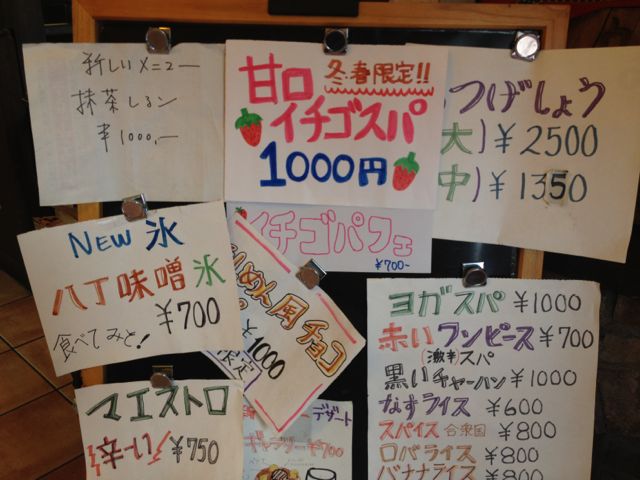 新しいメニュー
抹茶しるこ
¥1000,-
冬春限定!!
甘口
イチゴスパ
1000円
つげしょう
大)¥2500
中)¥1350
イチゴパフェ
¥700-
NEW 氷
八丁味噌氷
¥700
食べてみと!
めん風チョコ
¥1000
限定
マエストロ
辛〜い ¥750
デザート
¥700
ヨガスパ ¥1000
赤いワンピース ¥700
(激辛)スパ
黒いチャーハン ¥1000
なすライス ¥600
スパイス合衆国 ¥800
ロバライス ¥800
バナナライス ¥800